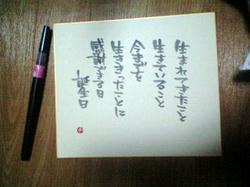 生まれてきたこと
生きていること
今まで
生ききったことに
感謝できる日
誕生日